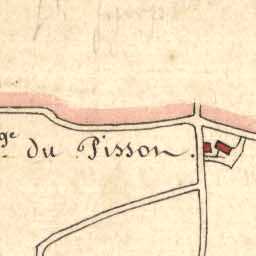 ge du Pisson.